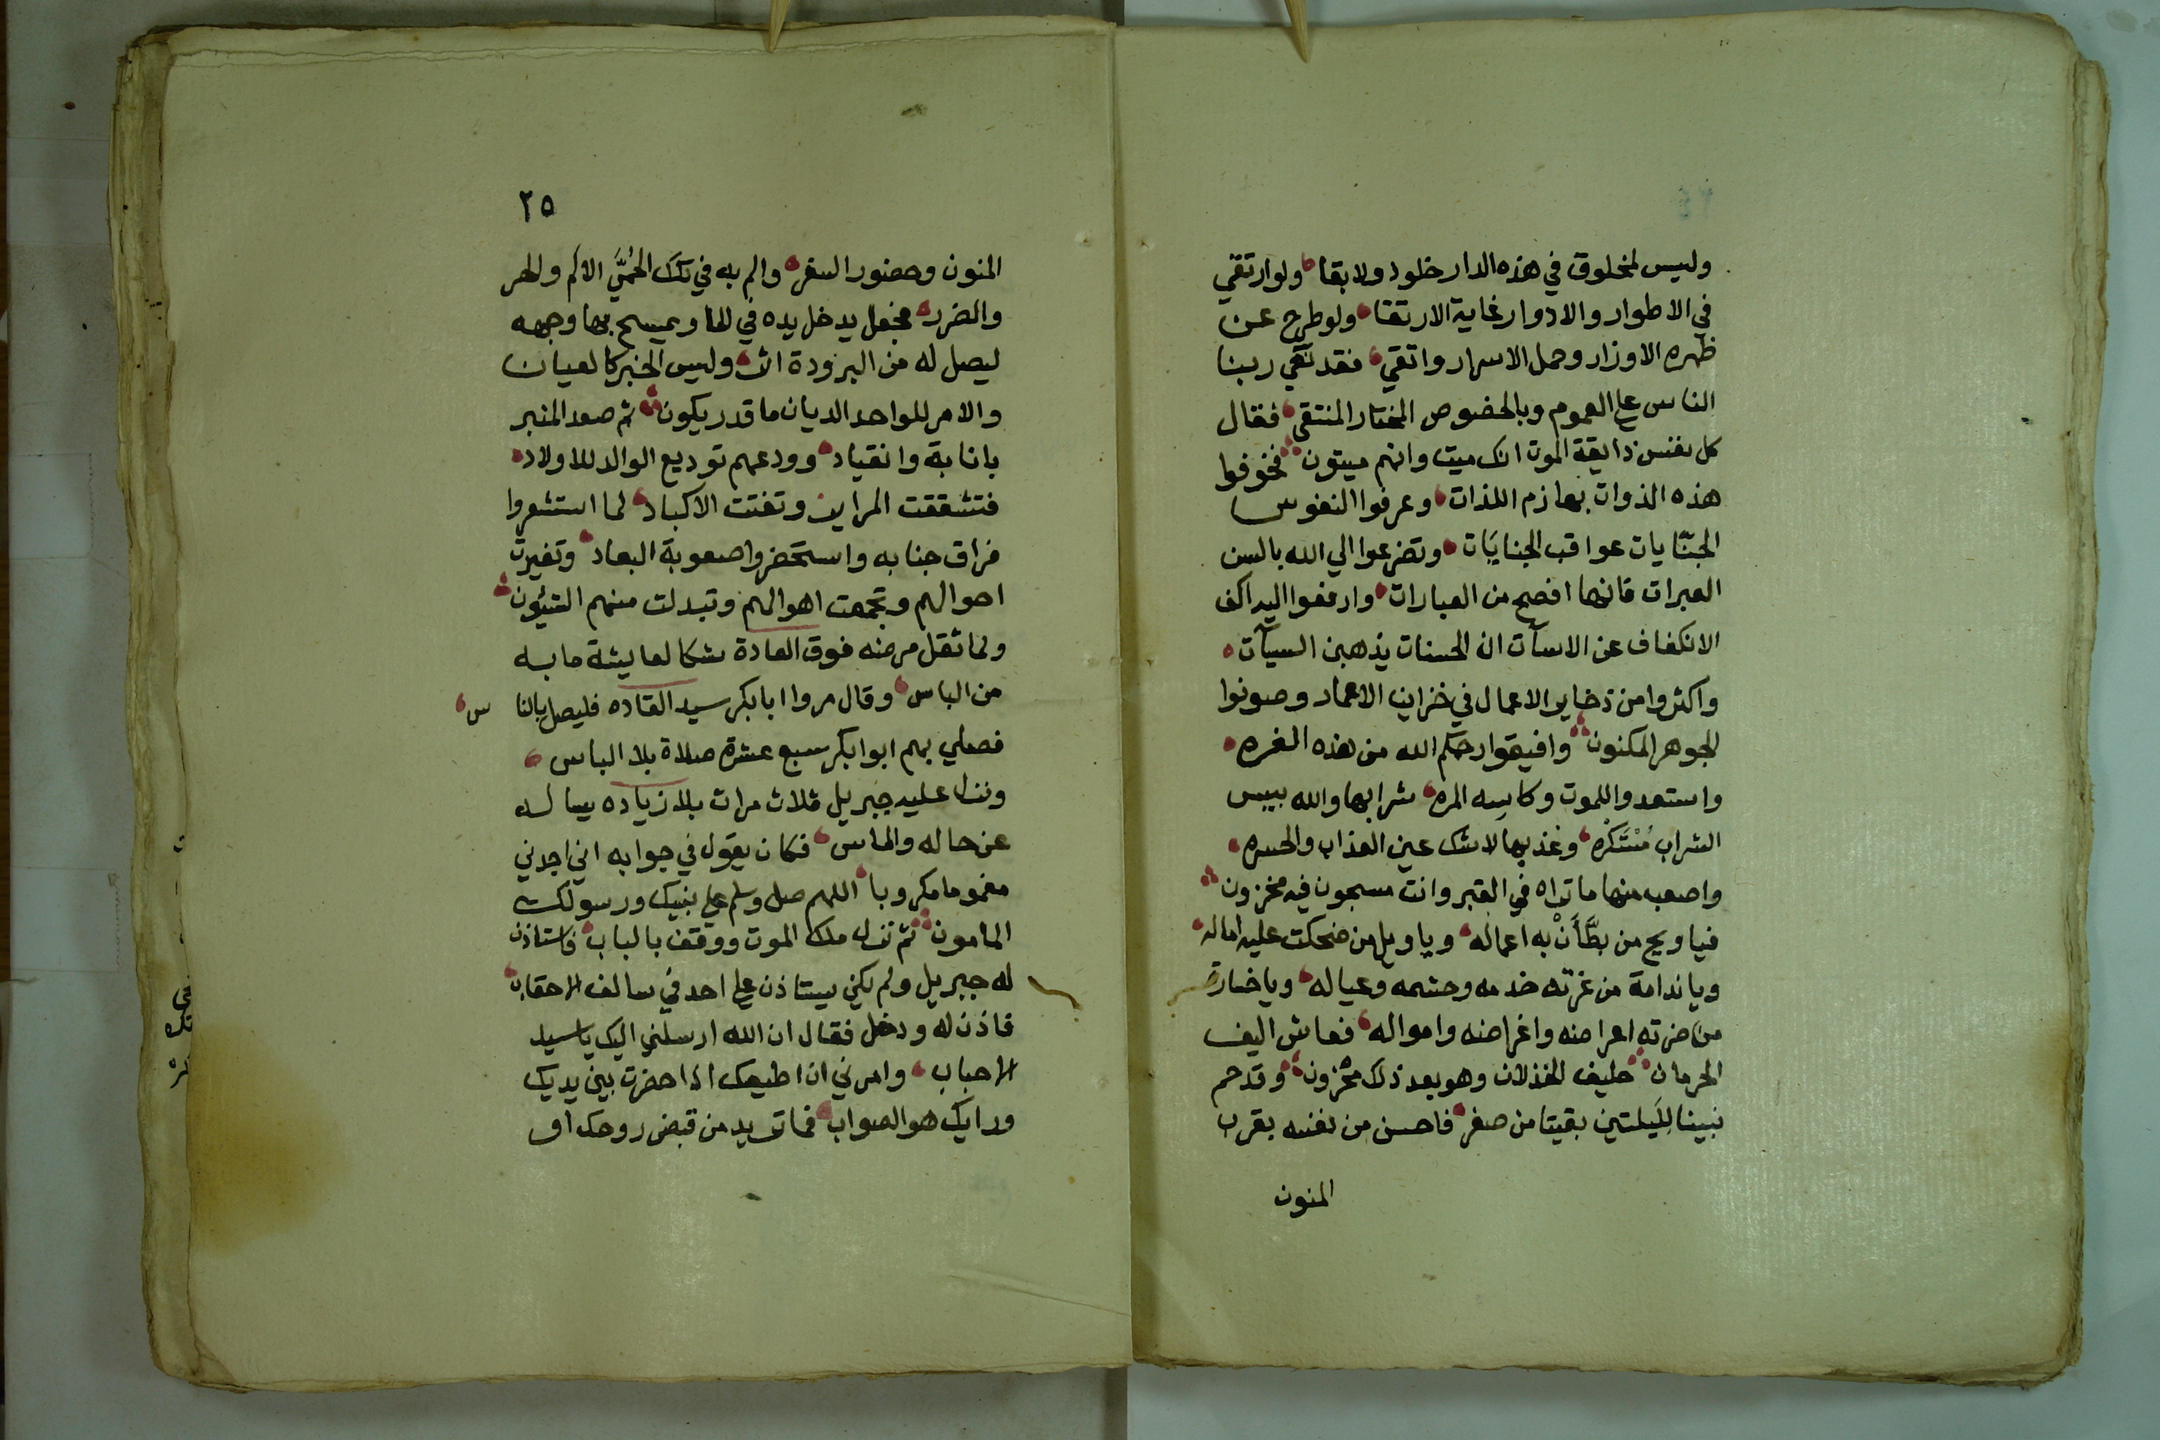 وليس لمخلوق في هذه الدار خلود ولا بقا ولو ارتقي
في الاطوار والادوار غاية الارتقا ولو طرح عن
ظهره الاوزار وحمل الاسهار واتقي فقد نعي ربنا
الناس علي العموم وبالخصوص المختار المنتقي فقال
كل نفس ذايقة الموت انك ميت وانهم ميتون فخوفوا
هذه الذوات بهازم اللذات وعرفوا النفوس
الجنّايات عواقب الجنايات وتضرعوا الي الله بالسن
العبرات فانها افصح من العبارات وارفعوا اليه اكف
الانكفاف عن الاسآت ان الحسنات يذهبن السيآت
واكثروا من ذخاير الاعمال في خزاين الاعمار وصونوا
الجوهر المكنون وافيقوا رحمكم الله من هذه الغره
واستعدوا للموت وكاسه المره شرابها والله بيس
الشراب مُسْتَكْرَه وعذبها لاشك عين العذاب والحسره
واصعب منها ما تراه في القبر وانت مسجون فيه مخزون
فيا ويح من بطَّأَتْ به اعماله ويا ويل من ضحكت عليه اماله
ويا ندامة من غرته خدمه وحشمه وعياله ويا خسارة
من ضرته اعراضه واغراضه وامواله فعاش اليف
الحرمان حليف الخذلان وهو بعد ذلك محزون وقد حم
نبينا لِلَيلتين بقيتا من صفر فاحس من نفسه بقرب
المنون
٢٥
المنون وحضور السفر والم به في تلك الحُمَّي الالم والحر
والضرر فجعل يدخل يده في الما ويمسح بها وجهه
ليصل له من البرودة اثر وليس الخبر كالعيان
والامر للواحد الديان ما قدر يكون ثم صعد المنبر
بانابة وانقياد وودعهم توديع الوالد للاولاد
فتشققت المراير وتفتت الاكباد لما استشعروا
فراق جنابه واستحضروا صعوبة البعاد وتغيرت
احوالهم وتجمعت اهوالهم وتبدلت منهم الشيُون
ولما ثقل مرضه فوق العادة شكا لعايشة ما به
من الباس وقال مروا ابا بكر سيد القاده فليصل بالناس
فصلي بهم ابوا بكر سبع عشرة صلاة بلا الباس
ونزل عليه جبريل ثلاث مرات بلا زياده يساله
عن حاله والماس فكان يقول في جوابه اني اجدني
مغموما مكروبا اللهم صل وسلم علي نبيك ورسولك
المامون ثم نزل ملك الموت ووقف بالباب فاستاذن
له جبريل ولم يكن يستاذن علي احد في سالف الاحقاب
فاذن له ودخل فقال ان الله ارسلني اليك يا سيد
الاحباب وامرني ان اطيعك اذا حضرت بين يديك
ورايك هو الصواب فما تريد من قبض روحك او